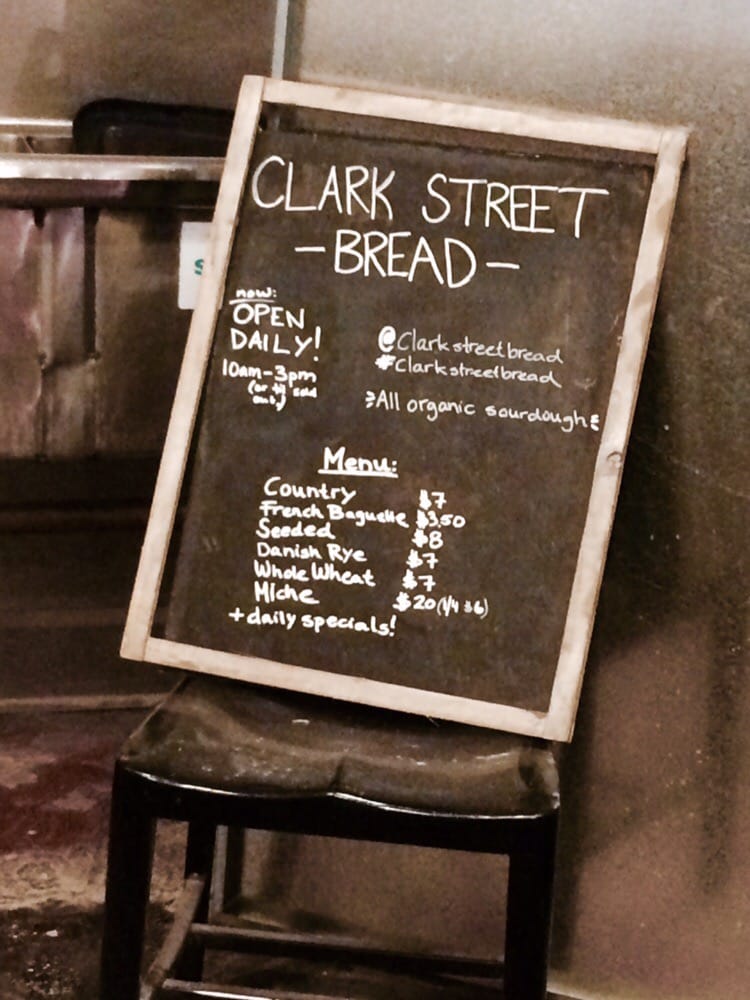 CLARK STREET
-BREAD-
now:
OPEN
DAILY!
10am-3pm
(or til sold
out)
@Clarkstreetbread
#Clarkstreetbread
All organic sourdough
Menu:
Country $7
French Baguette $3.50
Seeded $8
Danish Rye $7
Whole Wheat $7
Miche $20 (1/4 $6)
+daily specials!